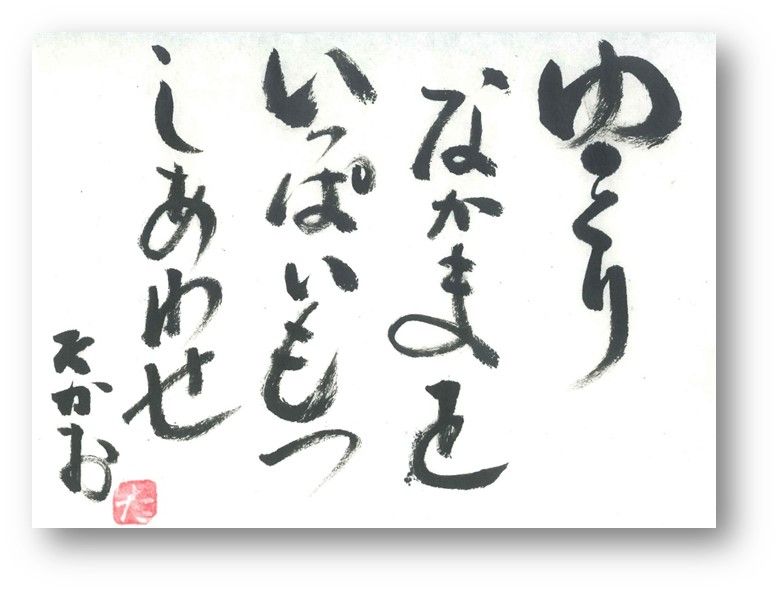 ゆとり
なかまを
いっぱいもつ
しあわせ
たかお
た